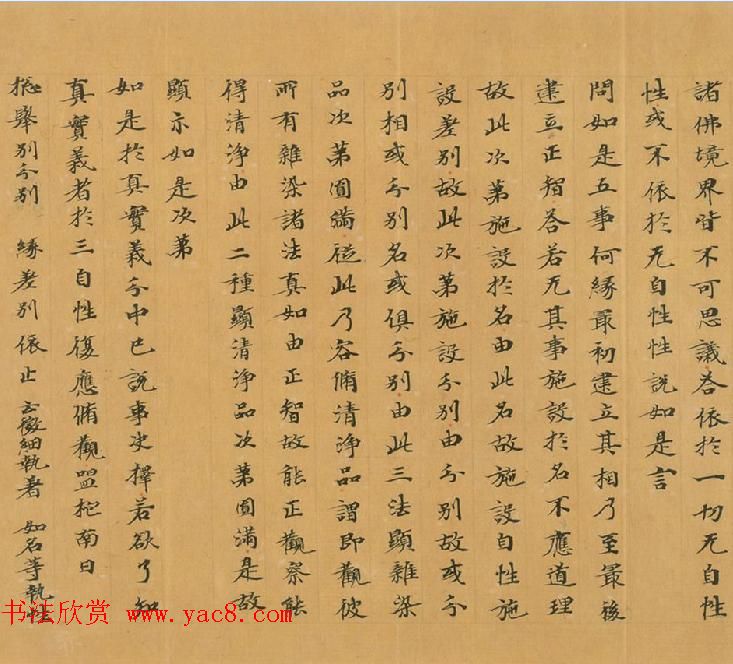 諸佛境界皆不可思議荅依於一切无自性
性或不依於无自性性說如是言
問如是五事何緣最初建立其相乃至最後
建立正智荅若无其事施設於名不應道理
故此次第施設於名由此名故施設自性施
設差別故此次第施設分別由分別故或分
別相或分別名或俱分別由此三法顯雜染
品次第圓滿從此乃容脩清淨品謂即觀彼
所有雜染諸法真如由正智故能正觀察能
得清淨由此二種顯清淨品次第圓滿是故
顯示如是次第
如是於真實義分中已說事決擇若欲了知
真實義者於三自性復應脩觀嗢柁南曰
揔舉別分別 緣差別依止 微細執著 如名等執性
书法欣赏 www.yac8.com